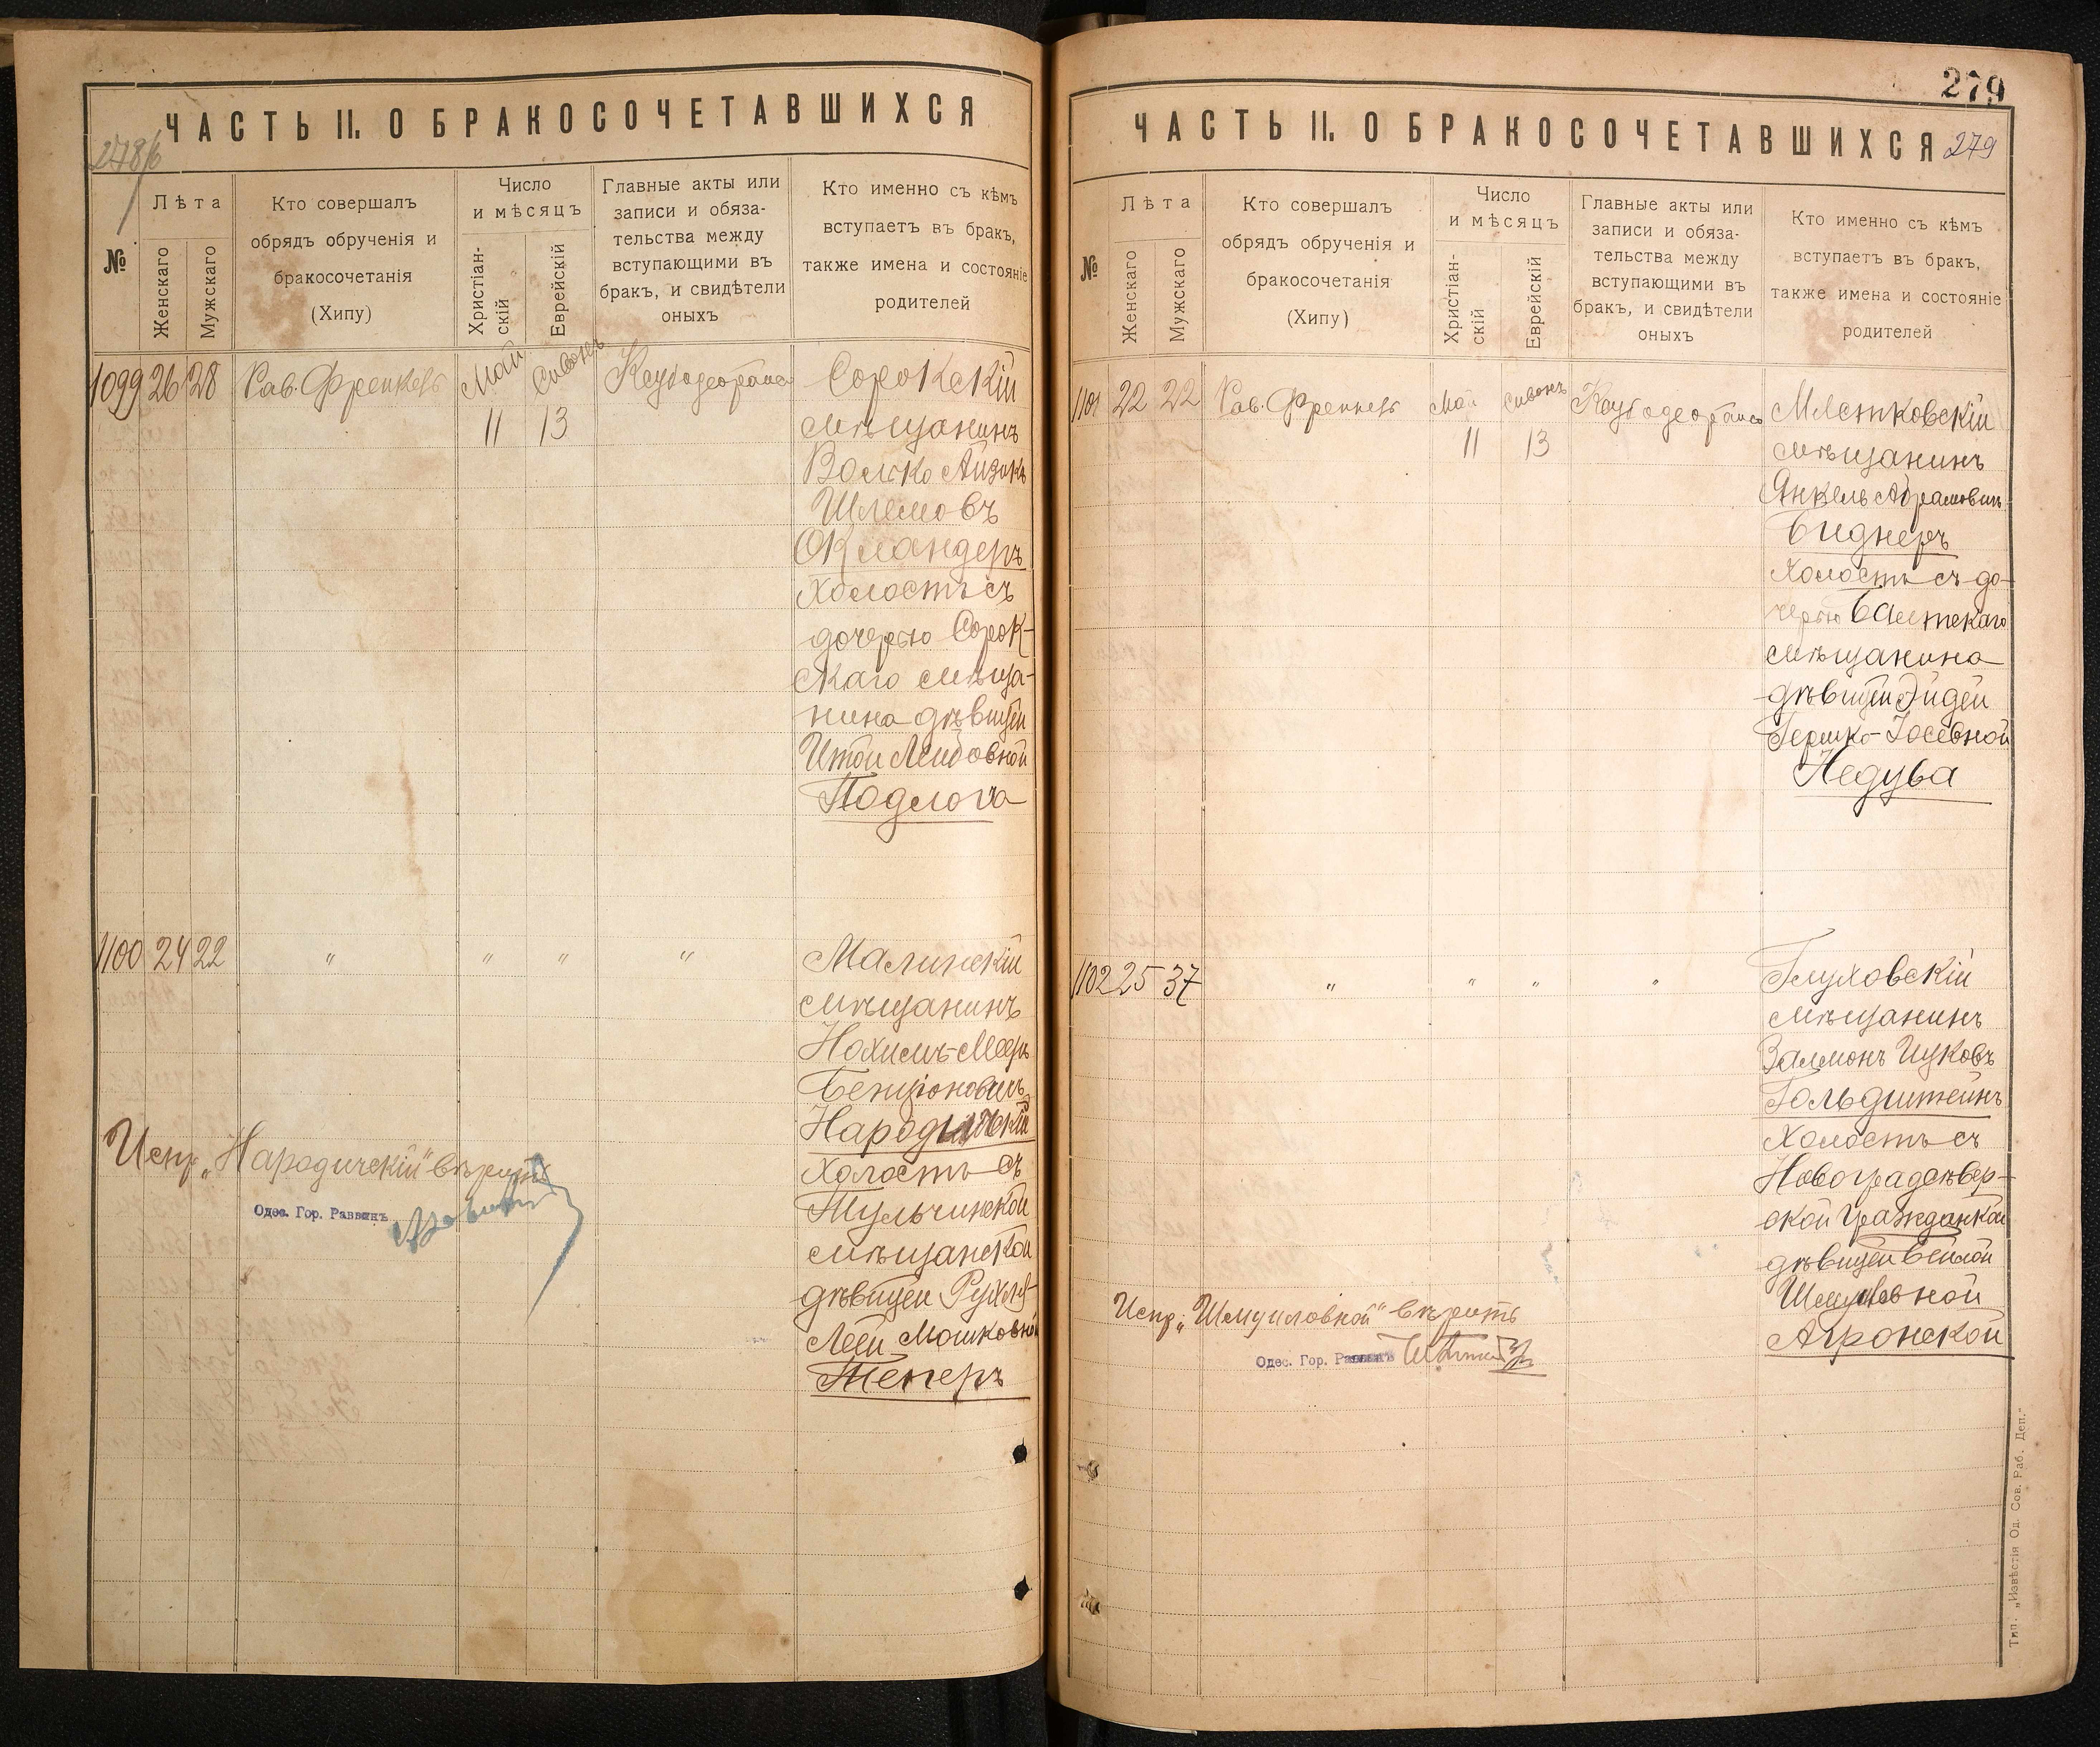 ЧАСТЬ II. О БРАКОСОЧЕТАВШИХСЯ
278/б
№
Лѣта
Женскаго
Мужскаго
Кто совершалъ
обрядъ обрученія и
бракосочетанія
(Хипу)
Число
и мѣсяцъ
Христіан-
скій
Еврейскій
Главные акты или
записи и обяза-
тельства между
вступающими въ
бракъ, и свидѣтели
оныхъ
Кто именно съ кѣмъ
вступаетъ въ бракъ,
также имена и состояніе
родителей
1099 26 28 Рав. Френкель Май Сивонъ
11 13
Сорокскій
мѣщанинъ
Волько Айзикъ
Шлемовъ
Окландеръ
холостъ съ
дочерью Сорок-
скаго мѣща-
нина дѣвицей
Итой Лейбовной
Подлога
1100 24 22 " " " "
Малинскій
мѣщанинъ
Нохимъ-Мееръ
Бенціоновичъ
Народическій
холостъ съ
Тульчинской
мѣщанской
дѣвицей Рухлей-
Леей Мошковной
Тенеръ
Испр. „Народическій" вѣрить
Одес. Гор. Раввинъ
279
ЧАСТЬ II. О БРАКОСОЧЕТАВШИХСЯ
279
№
Лѣта
Женскаго
Мужскаго
Кто совершалъ
обрядъ обрученія и
бракосочетанія
(Хипу)
Число
и мѣсяцъ
Христіан-
скій
Еврейскій
Главные акты или
записи и обяза-
тельства между
вступающими въ
бракъ, и свидѣтели
оныхъ
Кто именно съ кѣмъ
вступаетъ въ бракъ,
также имена и состояніе
родителей
1101 22 22 Рав. Френкель Май Сивонъ
11 13
Млетковскій
мѣщанинъ
Янкель Абрамовичъ
Биднеръ
холостъ съ до-
черью Балтскаго
мѣщанина
дѣвицей Эйдей
Гершко-Іосевной
Недува
1102 25 37 " " " "
Глуховскій
мѣщанинъ
Залмонъ Ицковъ
Гольдштейнъ
холостъ съ
Новоградсѣвер-
ской гражданкой
дѣвицей Бейлой
Шмуиловной
Агронской
Испр. „Шмуиловной" вѣрить
Одес. Гор. Раввинъ
Тип. „Извѣстія Од. Сов. Раб. Деп."